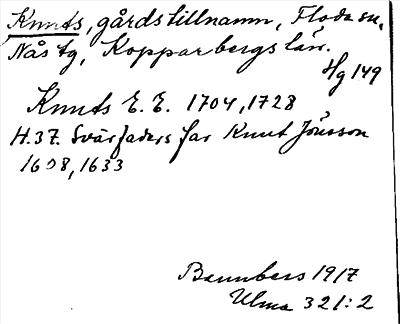 Knuts, gårdstillnamn, Floda sn,
Nås tg, Kopparbergs län.
Hg 149
Knuts E. E. 1704, 1728
H. 37. Svärfaders far Knut Jönsson
1608, 1633
Bannbers 1917
Ulma 321:2